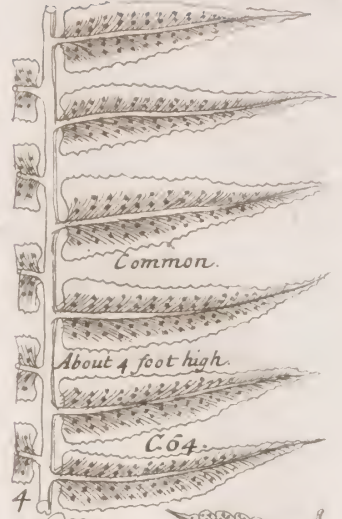 Common.
About 4 foot high.
C. 64.
4
9